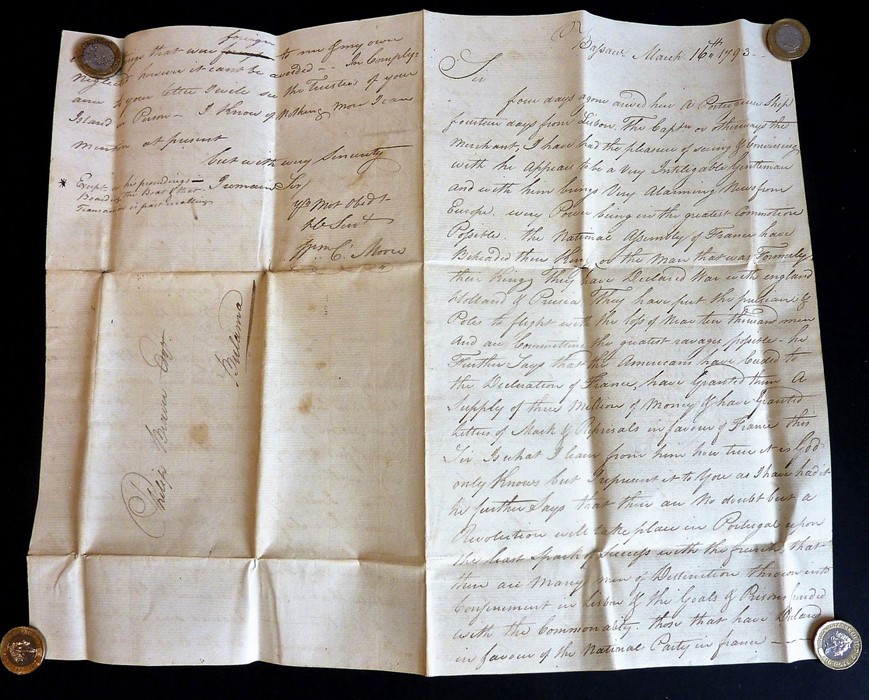 Bassaw March 16th 1793
Sir
four days agone arived here A Portugueas Ship
fourteen days from Lisbon. The Captn or otherways the
Merchant, I have had the pleasure of seeing & Conversing
with he Appears to be a Very Inteligable Gentleman
and with him brings Very Alarming News from
Europe. every Power being in the greatest Commotion
Possible. the National Assembly of France have
Beheaded their King or the Man that was Formerly
their King, They have Declared War with england
Holland & Prusia They have put the prusians &
Poles to flight with the loss of Near ten thousand men
And are Committing the greatest ravages possible - he
Further Says that the Americans have to
the Declaration of France, have Granted them A
Supply of three Million of Money & have Granted
Letters of Mark & Reprisals in favour of France this
Sir Is what I learn from him how true it is God
only Knows but I represent it to You as I have had it
he further Says that there are No doubt but a
Revolution will take place in Portugal upon
the least Spark of Success with the french, that
there are Many men of Destinction thrown into
Confinement in Lisbon & the Goals & Prisons
with the Commonality. those that have Declared
in favour of the National Party in france
things that were foreign to me & my own
Neglect however it cant be avoided - In Comply-
ance to your letter I will see the Trustees of your
Island in Person - I know of Nothing More I can
mention at present
but with every Sincerity
I remain Sir
Yr Most Obedt
Hle Servt
Wm C. Moore
* Except his proceedings
Boarding the Boat & that
Transaction in part excelling
Philip Beaver Esqr.
Bulama